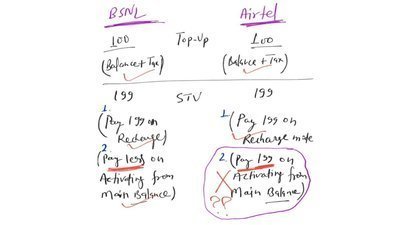 BSNL Airtel
100 Top-Up 100
(Balance+Tax) (Balance+Tax)
199 STV 199
1. (Pay 199 on Recharge)
1. (Pay 199 on Recharge mode
2. (Pay less on Activating from Main Balance)
2. (Pay 199 on Activating from Main Balance)
??